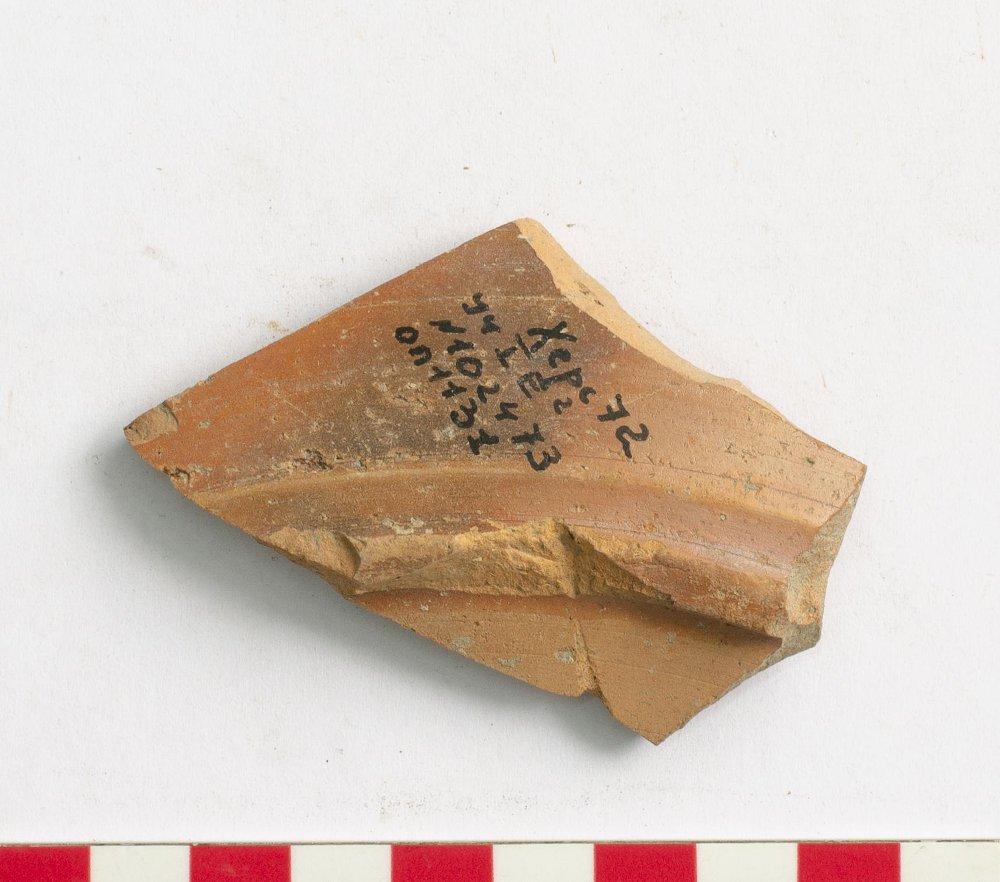 Херс 72
уч I
N 1024 73
оп 1131